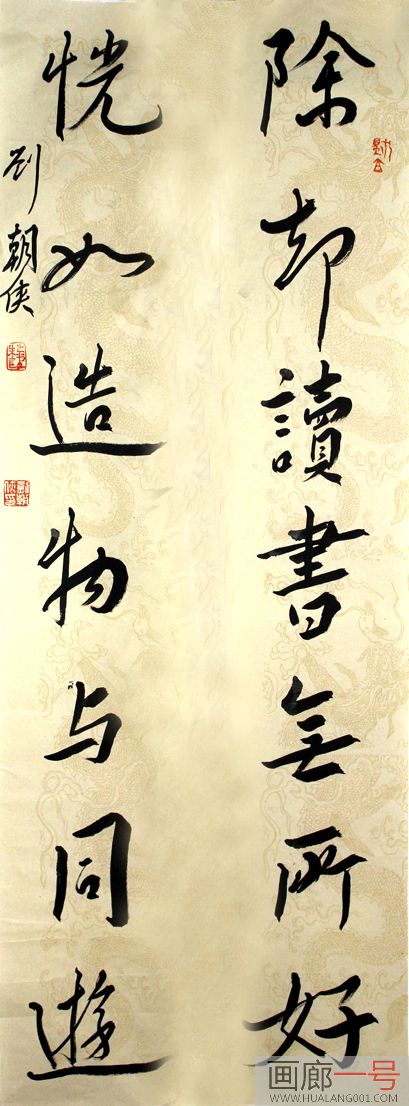 除却讀書無所好
恍如造物与同遊
刘朝侠
画廊一号
WWW.HUALANG001.COM